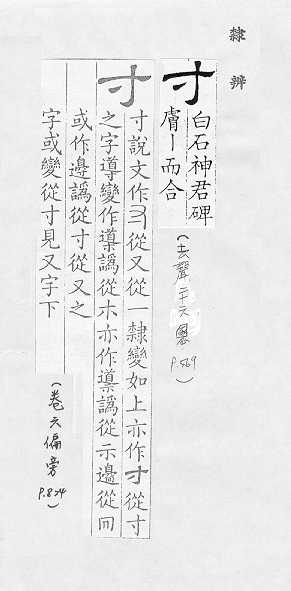 隸辨
寸
白石神君碑
膚丨而合
(去聲二十六慁 P.569)
寸
寸說文作𡬝從又從一隸變如上亦作寸從寸
之字導變作䆃譌從木亦作導譌從示邊從冏
或作邉譌從寸從又之
字或變從寸見又字下
(卷六偏旁 P.824)